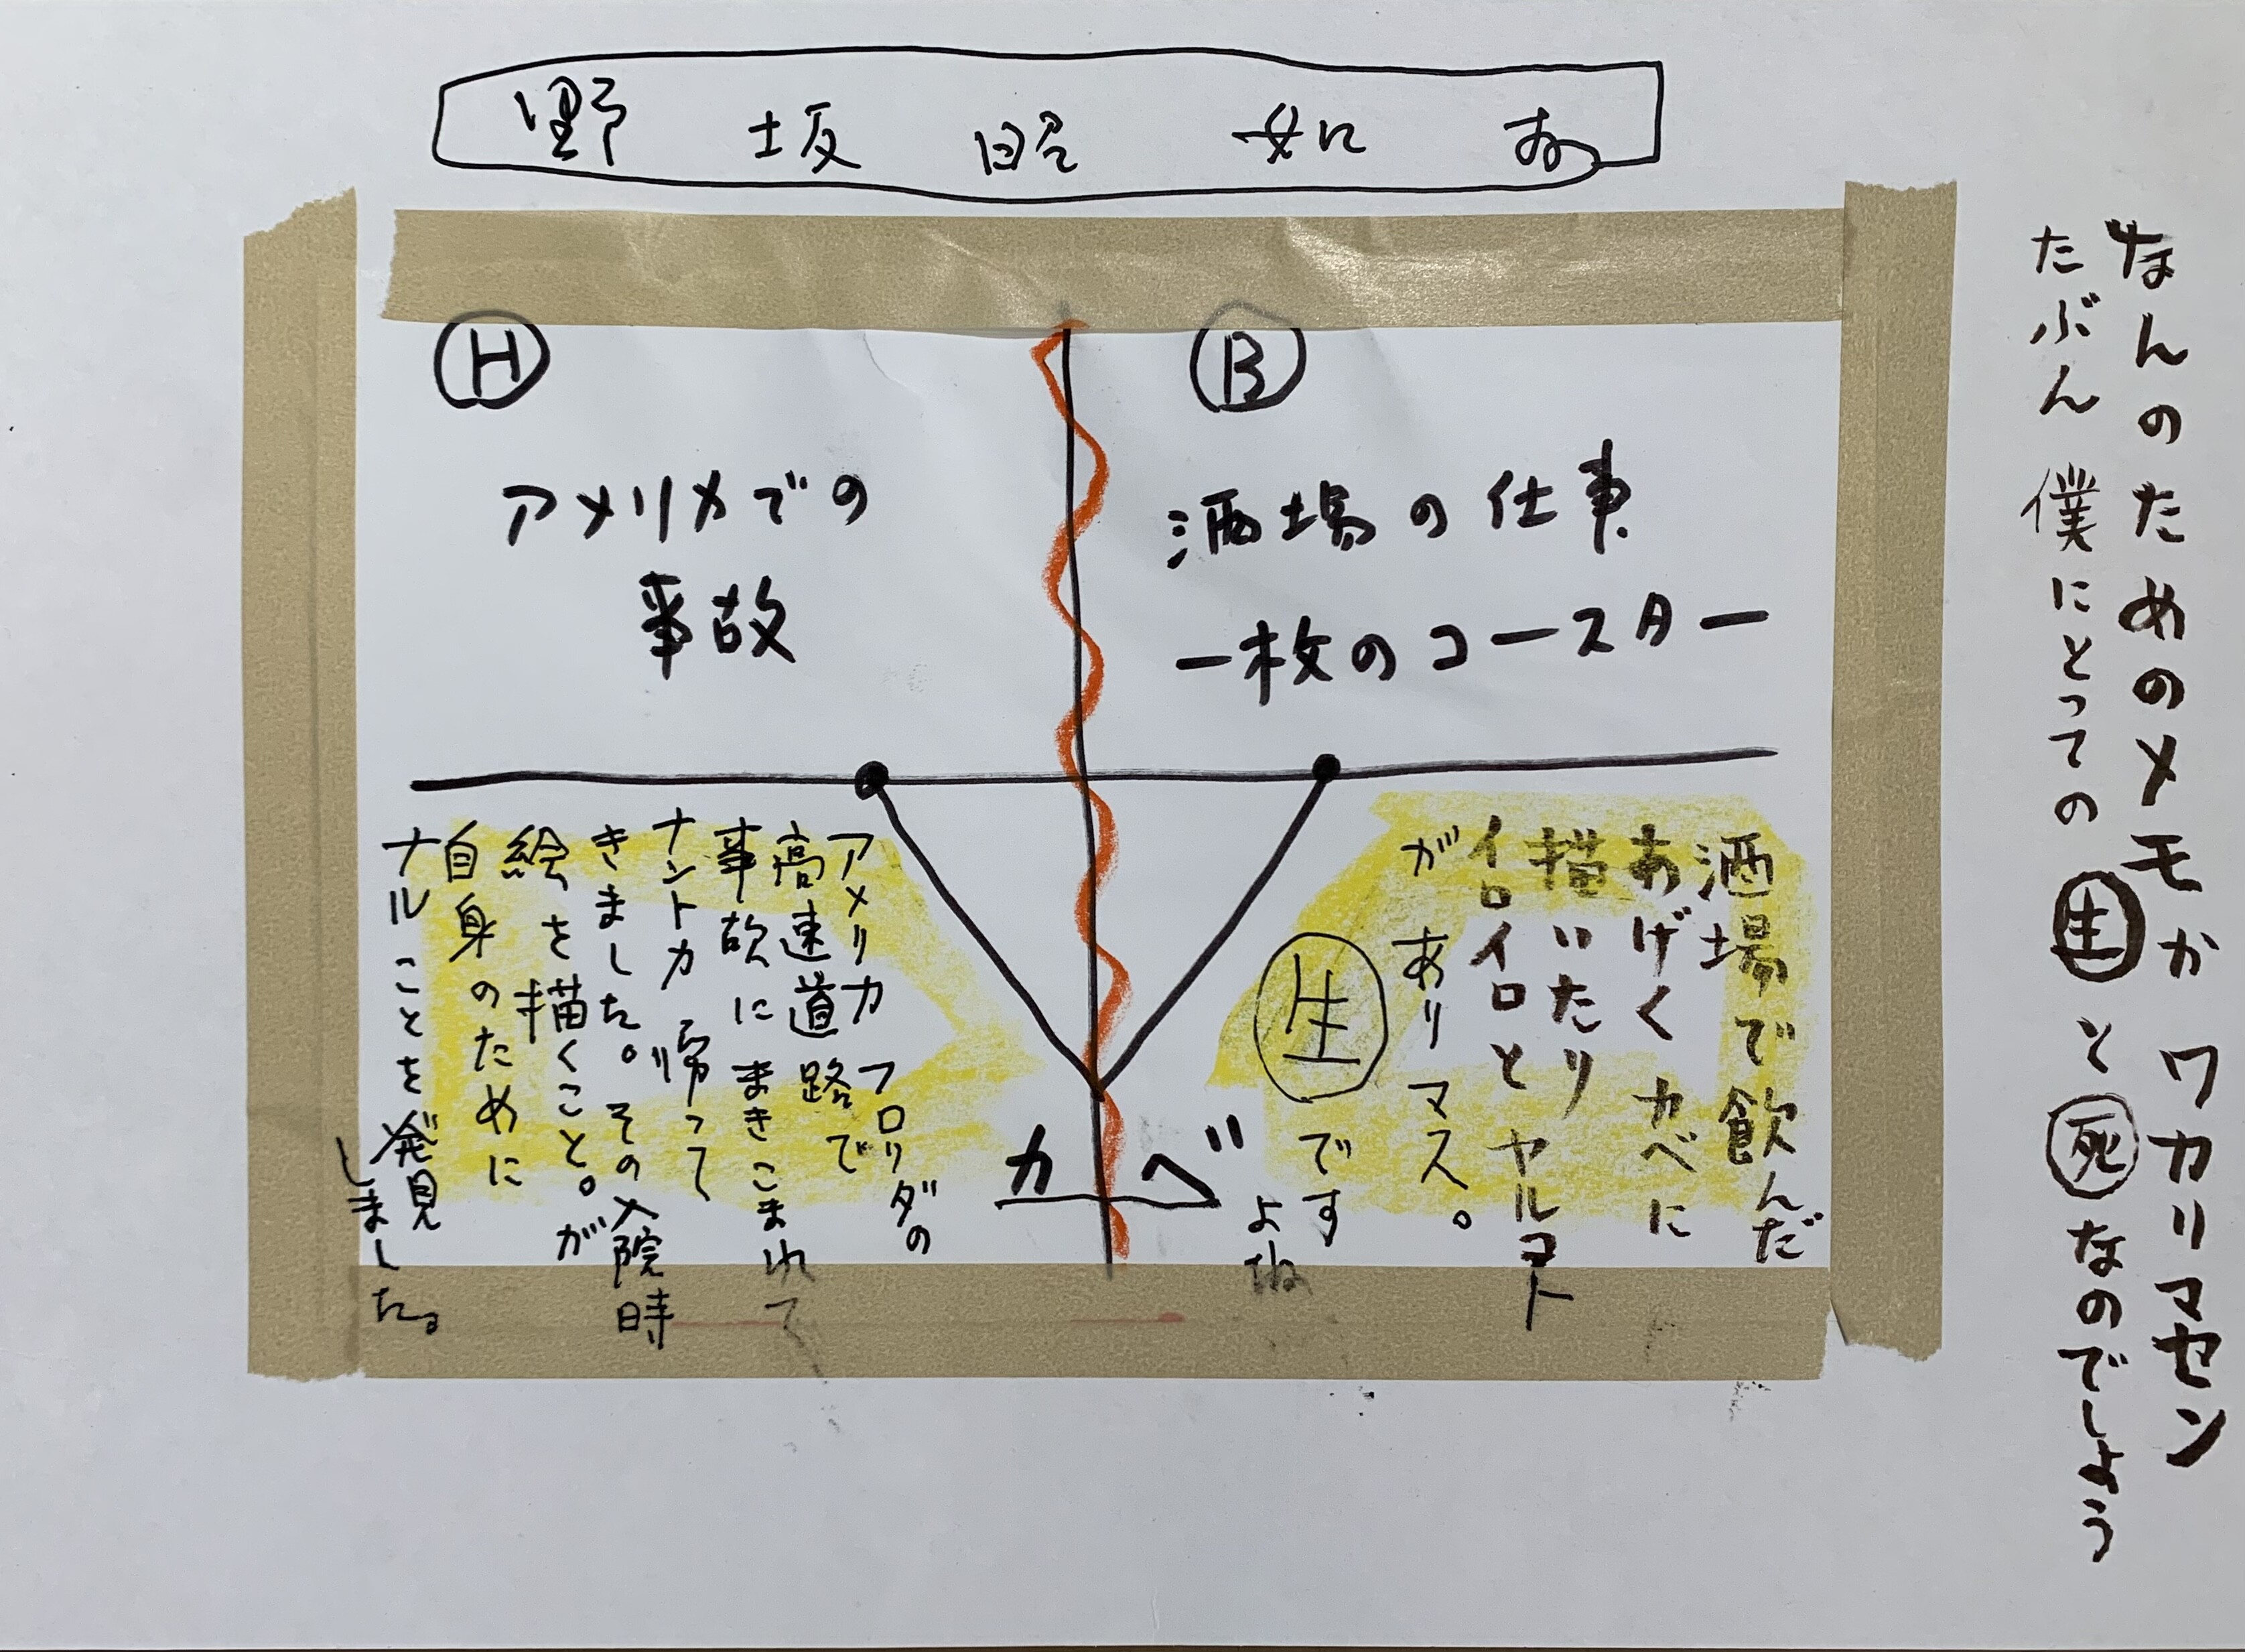 野 坂 昭 如
なんのためのメモか ワカリマセン
たぶん 僕にとっての 生 と 死 なのでしょう
H
アメリカでの
事故
B
酒場の仕事
一枚のコースター
酒場で飲んだ
あげく カベに
描いたり
イロイロと ヤルコト
が ありマス。
生 です
よね
カベ
アメリカ フロリダの
高速道路で
事故にまきこまれて
ナントカ 帰って
きました。その入院時
絵を描くこと。が
自身のために
ナルことを発見
しました。